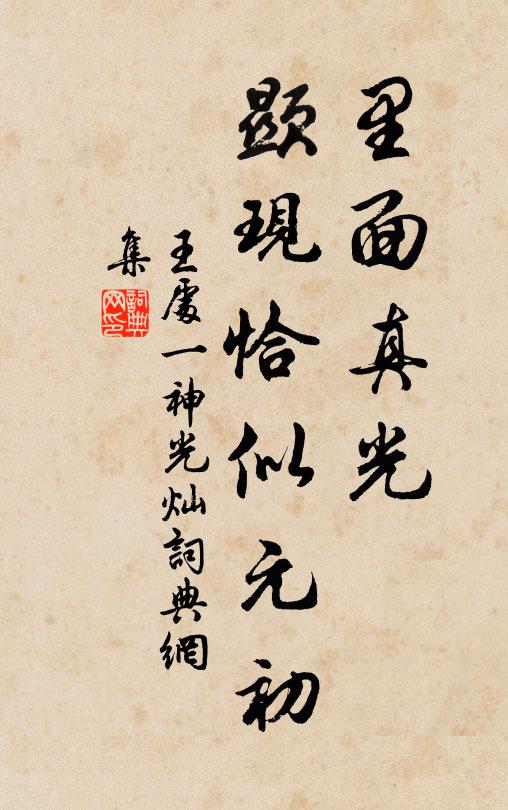 里面真光
顯現恰似元初
王處一神光灿詞典網
集
詞典
网印